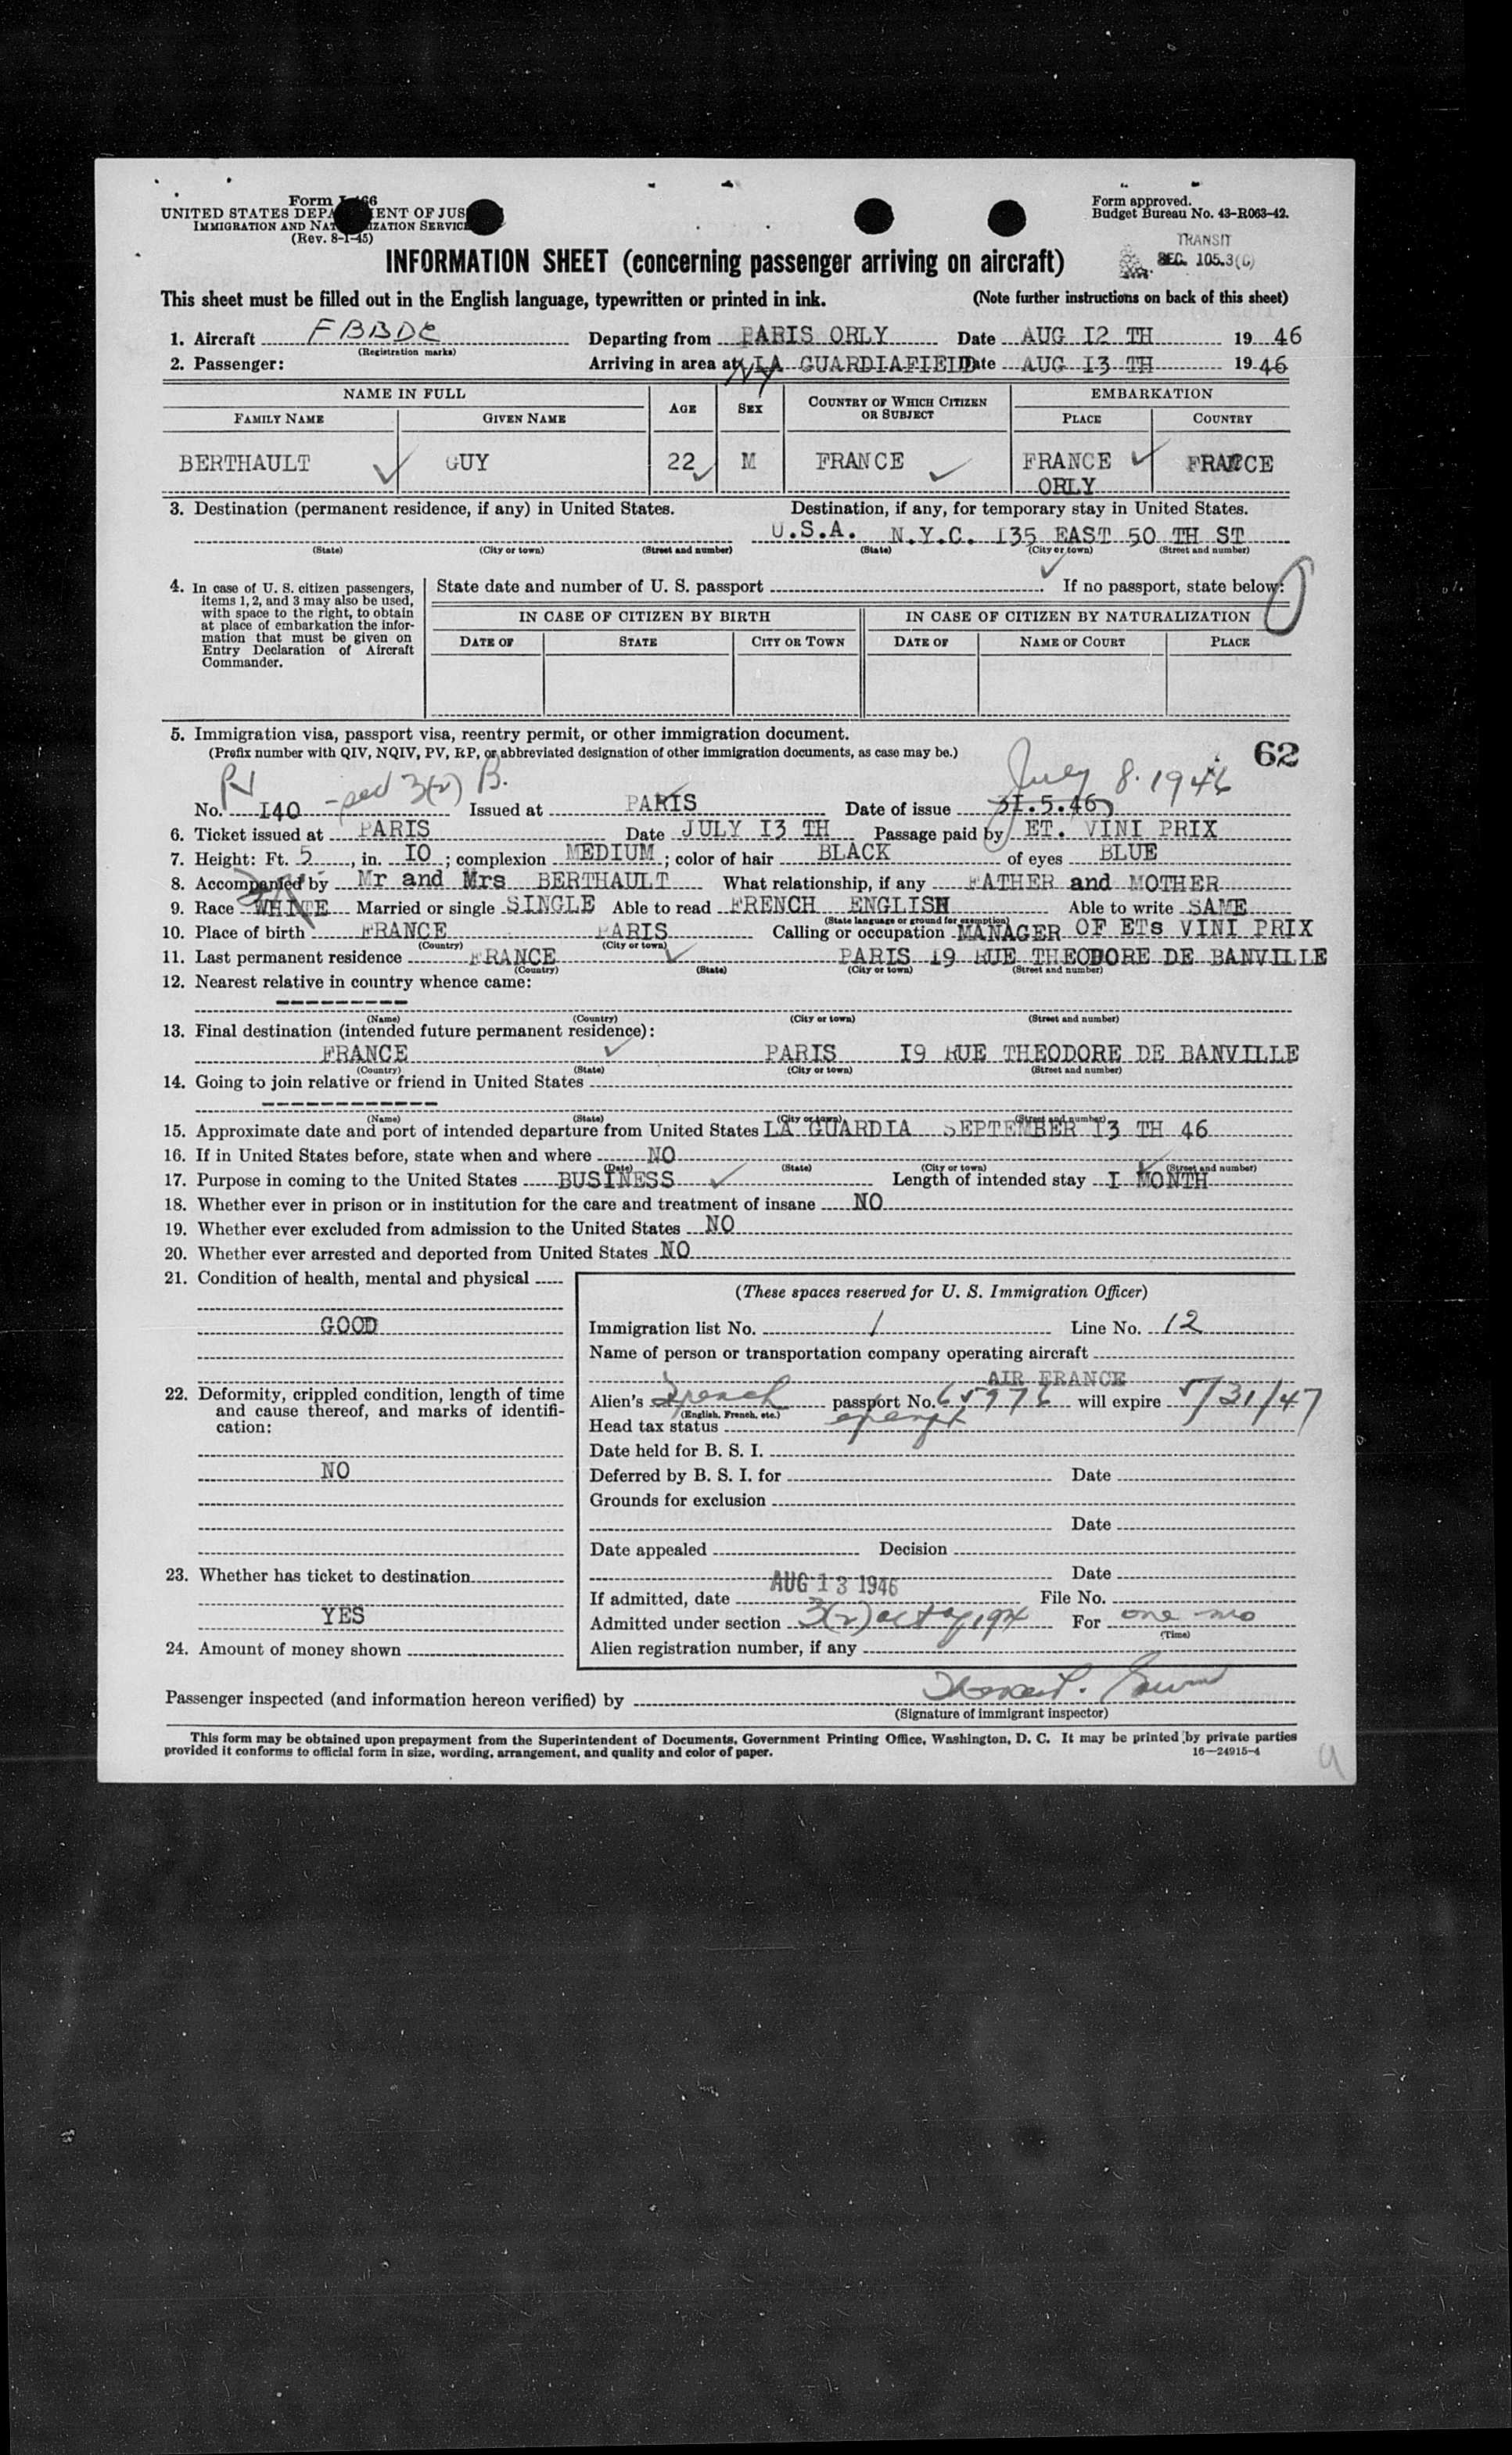 Form I-466
UNITED STATES DEPARTMENT OF JUSTICE
IMMIGRATION AND NATURALIZATION SERVICE
(Rev. 8-1-45)
Form approved.
Budget Bureau No. 43-R063-42.
TRANSIT
SEC. 105.3(C)
INFORMATION SHEET (concerning passenger arriving on aircraft)
This sheet must be filled out in the English language, typewritten or printed in ink. (Note further instructions on back of this sheet)
1. Aircraft FBBDC Departing from PARIS ORLY Date AUG I2 TH 19 46
(Registration marks)
2. Passenger: Arriving in area at NY LA GUARDIAFIELD Date AUG I3 TH 19 46
NAME IN FULL AGE SEX COUNTRY OF WHICH CITIZEN OR SUBJECT EMBARKATION
FAMILY NAME GIVEN NAME PLACE COUNTRY
BERTHAULT GUY 22 M FRANCE FRANCE FRANCE
ORLY
3. Destination (permanent residence, if any) in United States. Destination, if any, for temporary stay in United States.
U.S.A. N.Y.C. I35 EAST 50 TH ST
(State) (City or town) (Street and number) (State) (City or town) (Street and number)
4. In case of U. S. citizen passengers, items 1, 2, and 3 may also be used, with space to the right, to obtain at place of embarkation the information that must be given on Entry Declaration of Aircraft Commander.
State date and number of U. S. passport If no passport, state below:
IN CASE OF CITIZEN BY BIRTH IN CASE OF CITIZEN BY NATURALIZATION
DATE OF STATE CITY OR TOWN DATE OF NAME OF COURT PLACE
5. Immigration visa, passport visa, reentry permit, or other immigration document.
(Prefix number with QIV, NQIV, PV, RP, or abbreviated designation of other immigration documents, as case may be.)
62
PV 3(2) B. July 8. 1946
No. I40 Issued at PARIS Date of issue 3I.5.46
6. Ticket issued at PARIS Date JULY I3 TH Passage paid by ET. VINI PRIX
7. Height: Ft. 5, in. IO; complexion MEDIUM; color of hair BLACK of eyes BLUE
8. Accompanied by Mr and Mrs BERTHAULT What relationship, if any FATHER and MOTHER
9. Race WHITE Married or single SINGLE Able to read FRENCH ENGLISH Able to write SAME
(State language or ground for exemption)
10. Place of birth FRANCE PARIS Calling or occupation MANAGER OF ETs VINI PRIX
(Country) (City or town)
11. Last permanent residence FRANCE PARIS I9 RUE THEODORE DE BANVILLE
(Country) (State) (City or town) (Street and number)
12. Nearest relative in country whence came:
---------
(Name) (Country) (City or town) (Street and number)
13. Final destination (intended future permanent residence):
FRANCE PARIS I9 RUE THEODORE DE BANVILLE
(Country) (State) (City or town) (Street and number)
14. Going to join relative or friend in United States
------------
(Name) (State) (City or town) (Street and number)
15. Approximate date and port of intended departure from United States LA GUARDIA SEPTEMBER I3 TH 46
16. If in United States before, state when and where NO
(Date) (State) (City or town) (Street and number)
17. Purpose in coming to the United States BUSINESS Length of intended stay I MONTH
18. Whether ever in prison or in institution for the care and treatment of insane NO
19. Whether ever excluded from admission to the United States NO
20. Whether ever arrested and deported from United States NO
21. Condition of health, mental and physical
GOOD
22. Deformity, crippled condition, length of time and cause thereof, and marks of identification:
NO
23. Whether has ticket to destination
YES
24. Amount of money shown
(These spaces reserved for U. S. Immigration Officer)
Immigration list No. 1 Line No. 12
Name of person or transportation company operating aircraft
AIR FRANCE
Alien's French passport No. 65976 will expire 5/31/47
(English, French, etc.)
Head tax status exempt
Date held for B. S. I.
Deferred by B. S. I. for Date
Grounds for exclusion
Date
Date appealed Decision
Date
If admitted, date AUG 13 1946 File No.
Admitted under section 3(2) act of 1924 For one mo
(Time)
Alien registration number, if any
Passenger inspected (and information hereon verified) by
(Signature of immigrant inspector)
This form may be obtained upon prepayment from the Superintendent of Documents, Government Printing Office, Washington, D. C. It may be printed by private parties
provided it conforms to official form in size, wording, arrangement, and quality and color of paper. 16—24915-4